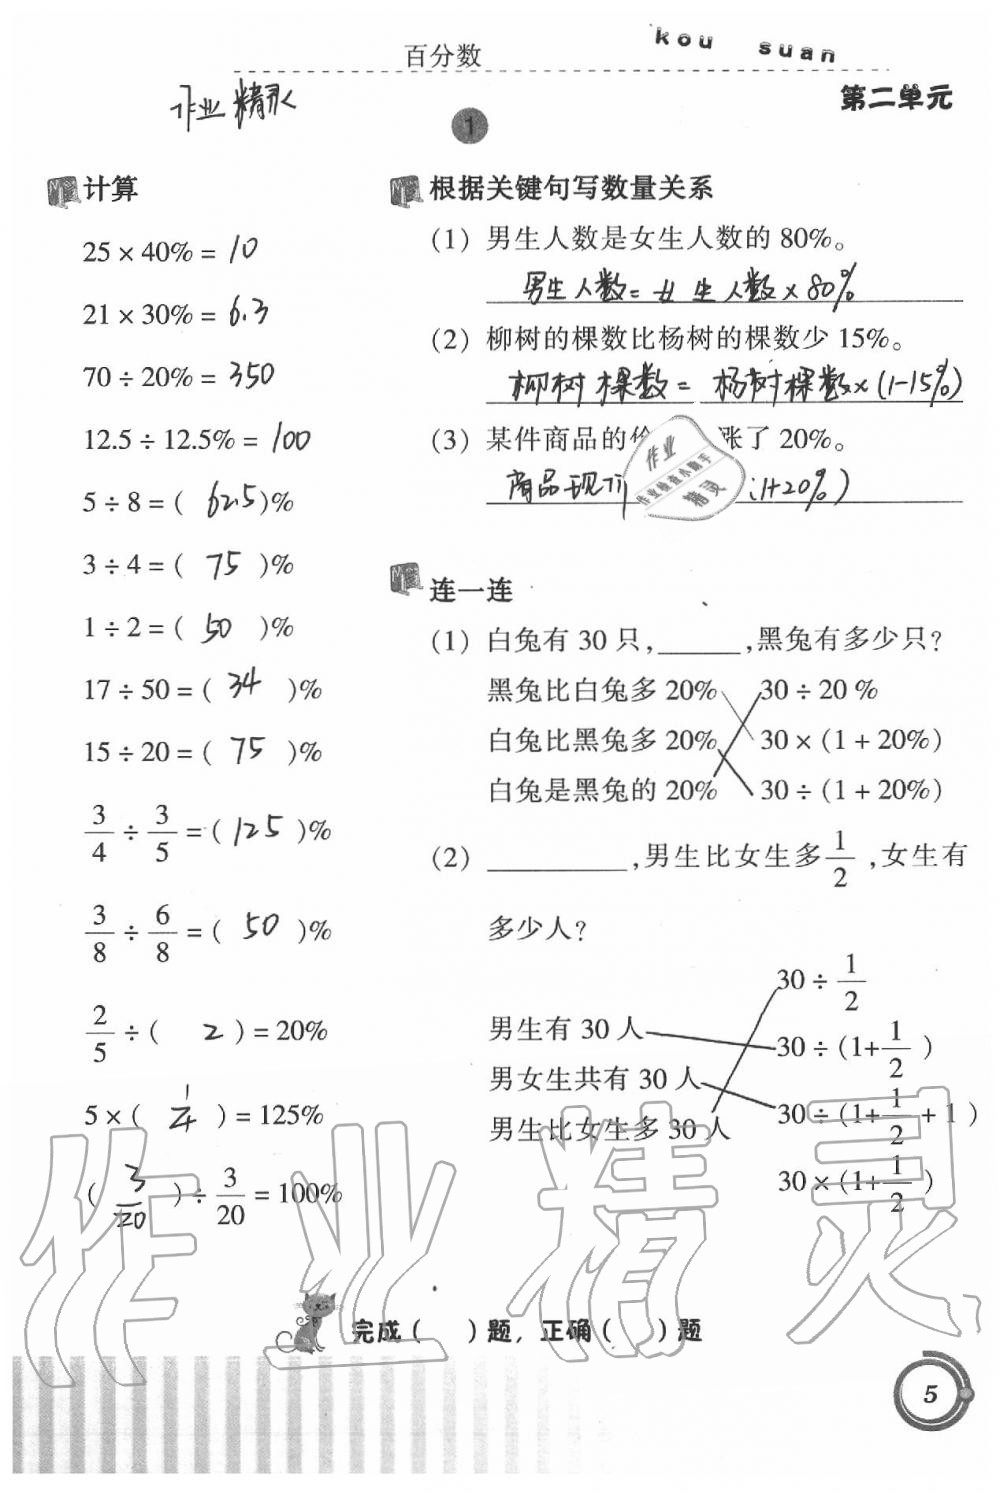 百分数
kou suan
作业精灵
第二单元
1
计算
25 × 40% = 10
21 × 30% = 6.3
70 ÷ 20% = 350
12.5 ÷ 12.5% = 100
5 ÷ 8 = ( 62.5 )%
3 ÷ 4 = ( 75 )%
1 ÷ 2 = ( 50 )%
17 ÷ 50 = ( 34 )%
15 ÷ 20 = ( 75 )%
3/4 ÷ 3/5 = ( 125 )%
3/8 ÷ 6/8 = ( 50 )%
2/5 ÷ ( 2 ) = 20%
5 × ( 1/4 ) = 125%
( 3/20 ) ÷ 3/20 = 100%
根据关键句写数量关系
(1) 男生人数是女生人数的 80%。
男生人数=女生人数×80%
(2) 柳树的棵数比杨树的棵数少 15%。
柳树棵数=杨树棵数×(1-15%)
(3) 某件商品的价 涨了 20%。
商品现 (1+20%)
作业
作业检查小助手
精灵
连一连
(1) 白兔有 30 只,______,黑兔有多少只?
黑兔比白兔多 20% 30 ÷ 20 %
白兔比黑兔多 20% 30 × (1 + 20%)
白兔是黑兔的 20% 30 ÷ (1 + 20%)
(2) __________,男生比女生多 1/2 ,女生有
多少人?
30 ÷ 1/2
男生有 30 人 30 ÷ (1+1/2)
男女生共有 30 人 30 ÷ (1+1/2+1)
男生比女生多 30 人
30 × (1+1/2)
作业精灵
完成( )题,正确( )题
5